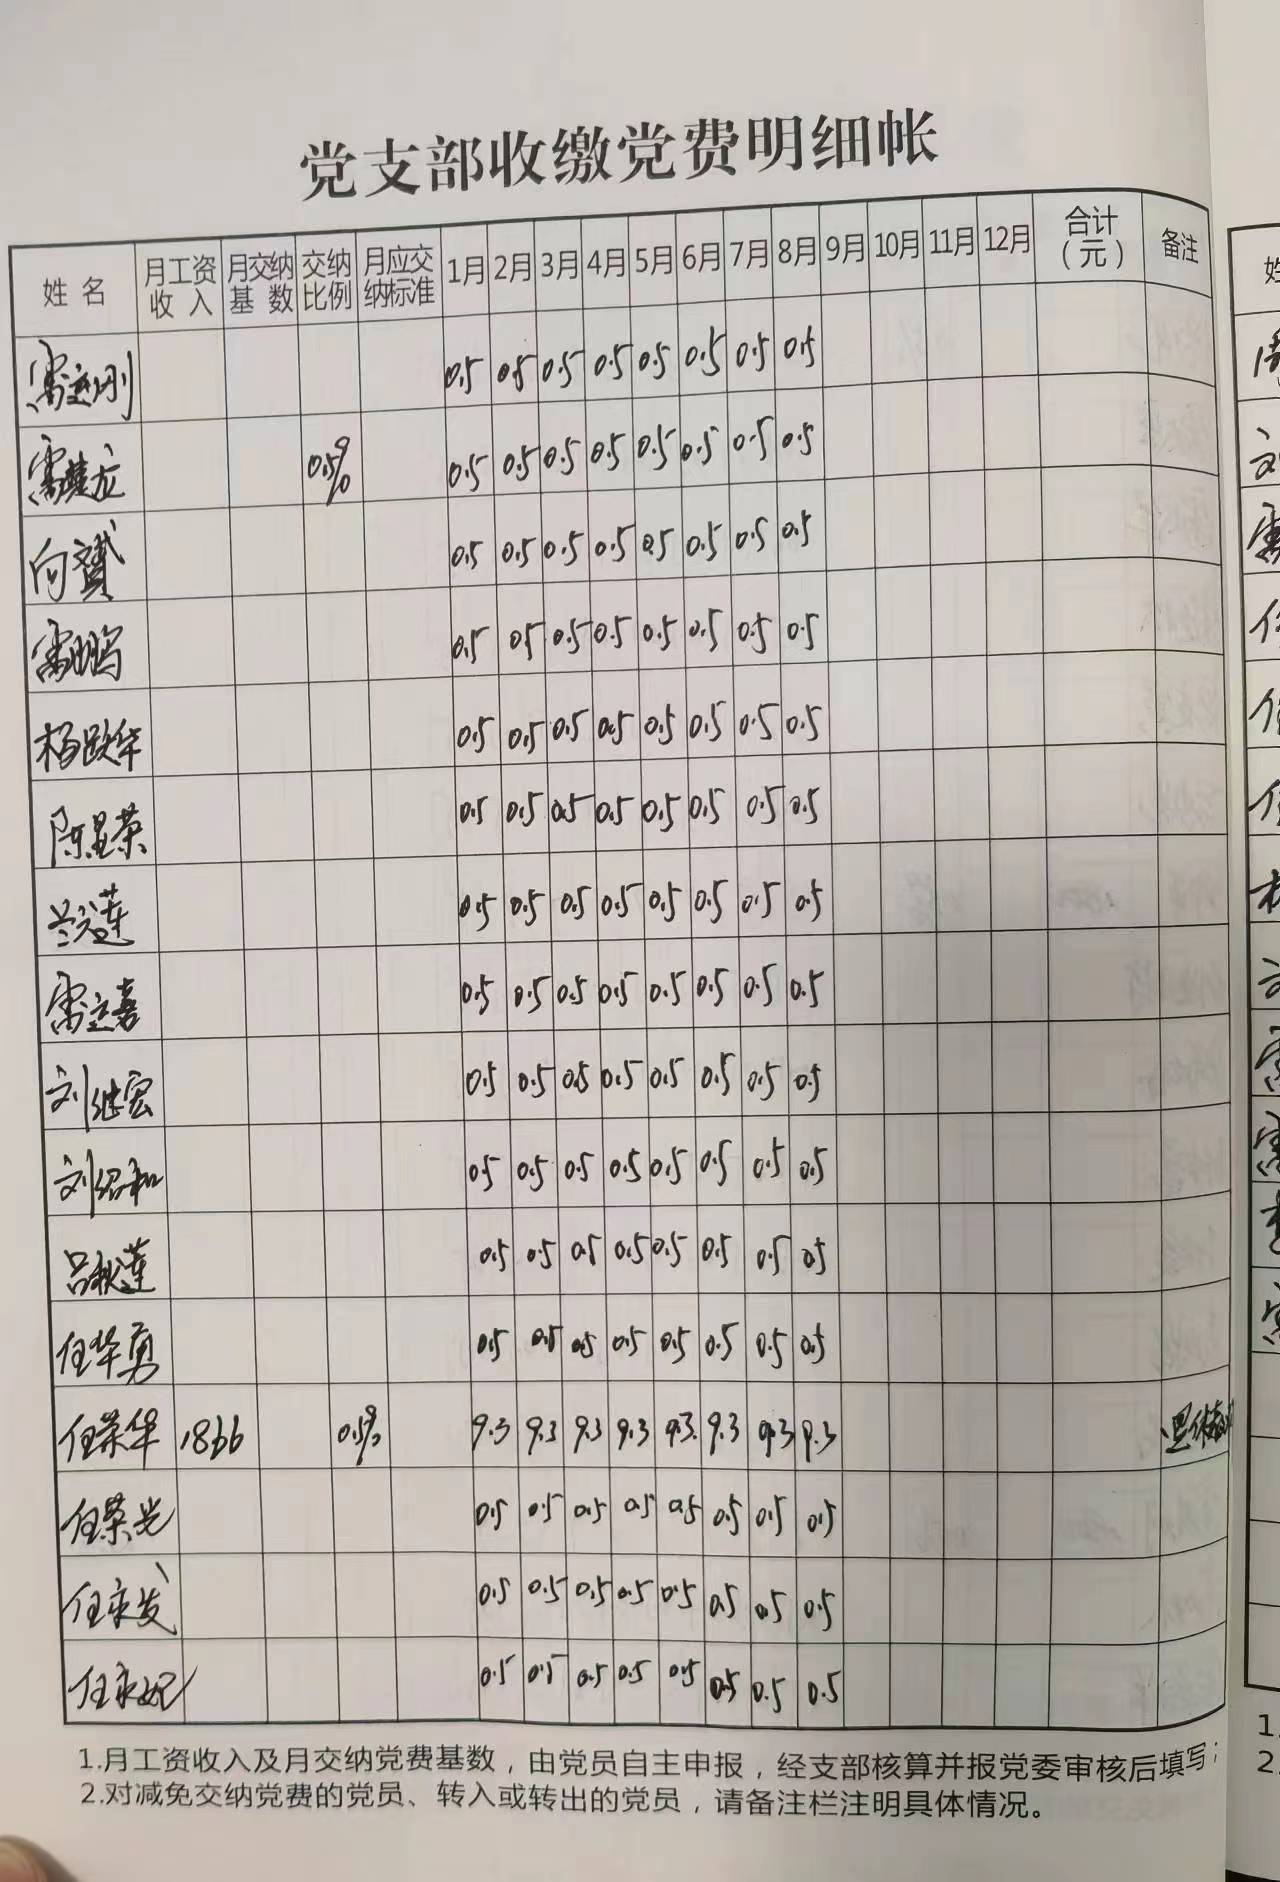 党支部收缴党费明细帐
姓名 月工资收入 月交纳基数 交纳比例 月应交纳标准 1月 2月 3月 4月 5月 6月 7月 8月 9月 10月 11月 12月 合计（元） 备注
0.5 0.5 0.5 0.5 0.5 0.5 0.5 0.5
0.5% 0.5 0.5 0.5 0.5 0.5 0.5 0.5 0.5
向赟 0.5 0.5 0.5 0.5 0.5 0.5 0.5 0.5
雷鹏 0.5 0.5 0.5 0.5 0.5 0.5 0.5 0.5
杨跃华 0.5 0.5 0.5 0.5 0.5 0.5 0.5 0.5
陈显荣 0.5 0.5 0.5 0.5 0.5 0.5 0.5 0.5
0.5 0.5 0.5 0.5 0.5 0.5 0.5 0.5
雷立嘉 0.5 0.5 0.5 0.5 0.5 0.5 0.5 0.5
刘继宏 0.5 0.5 0.5 0.5 0.5 0.5 0.5 0.5
刘绍和 0.5 0.5 0.5 0.5 0.5 0.5 0.5 0.5
吕秋莲 0.5 0.5 0.5 0.5 0.5 0.5 0.5 0.5
任华勇 0.5 0.5 0.5 0.5 0.5 0.5 0.5 0.5
任荣华 1866 0.5% 9.3 9.3 9.3 9.3 9.3 9.3 9.3 9.3 退休
任荣光 0.5 0.5 0.5 0.5 0.5 0.5 0.5 0.5
任永发 0.5 0.5 0.5 0.5 0.5 0.5 0.5 0.5
任永妃 0.5 0.5 0.5 0.5 0.5 0.5 0.5 0.5
1.月工资收入及月交纳党费基数，由党员自主申报，经支部核算并报党委审核后填写；
2.对减免交纳党费的党员、转入或转出的党员，请备注栏注明具体情况。